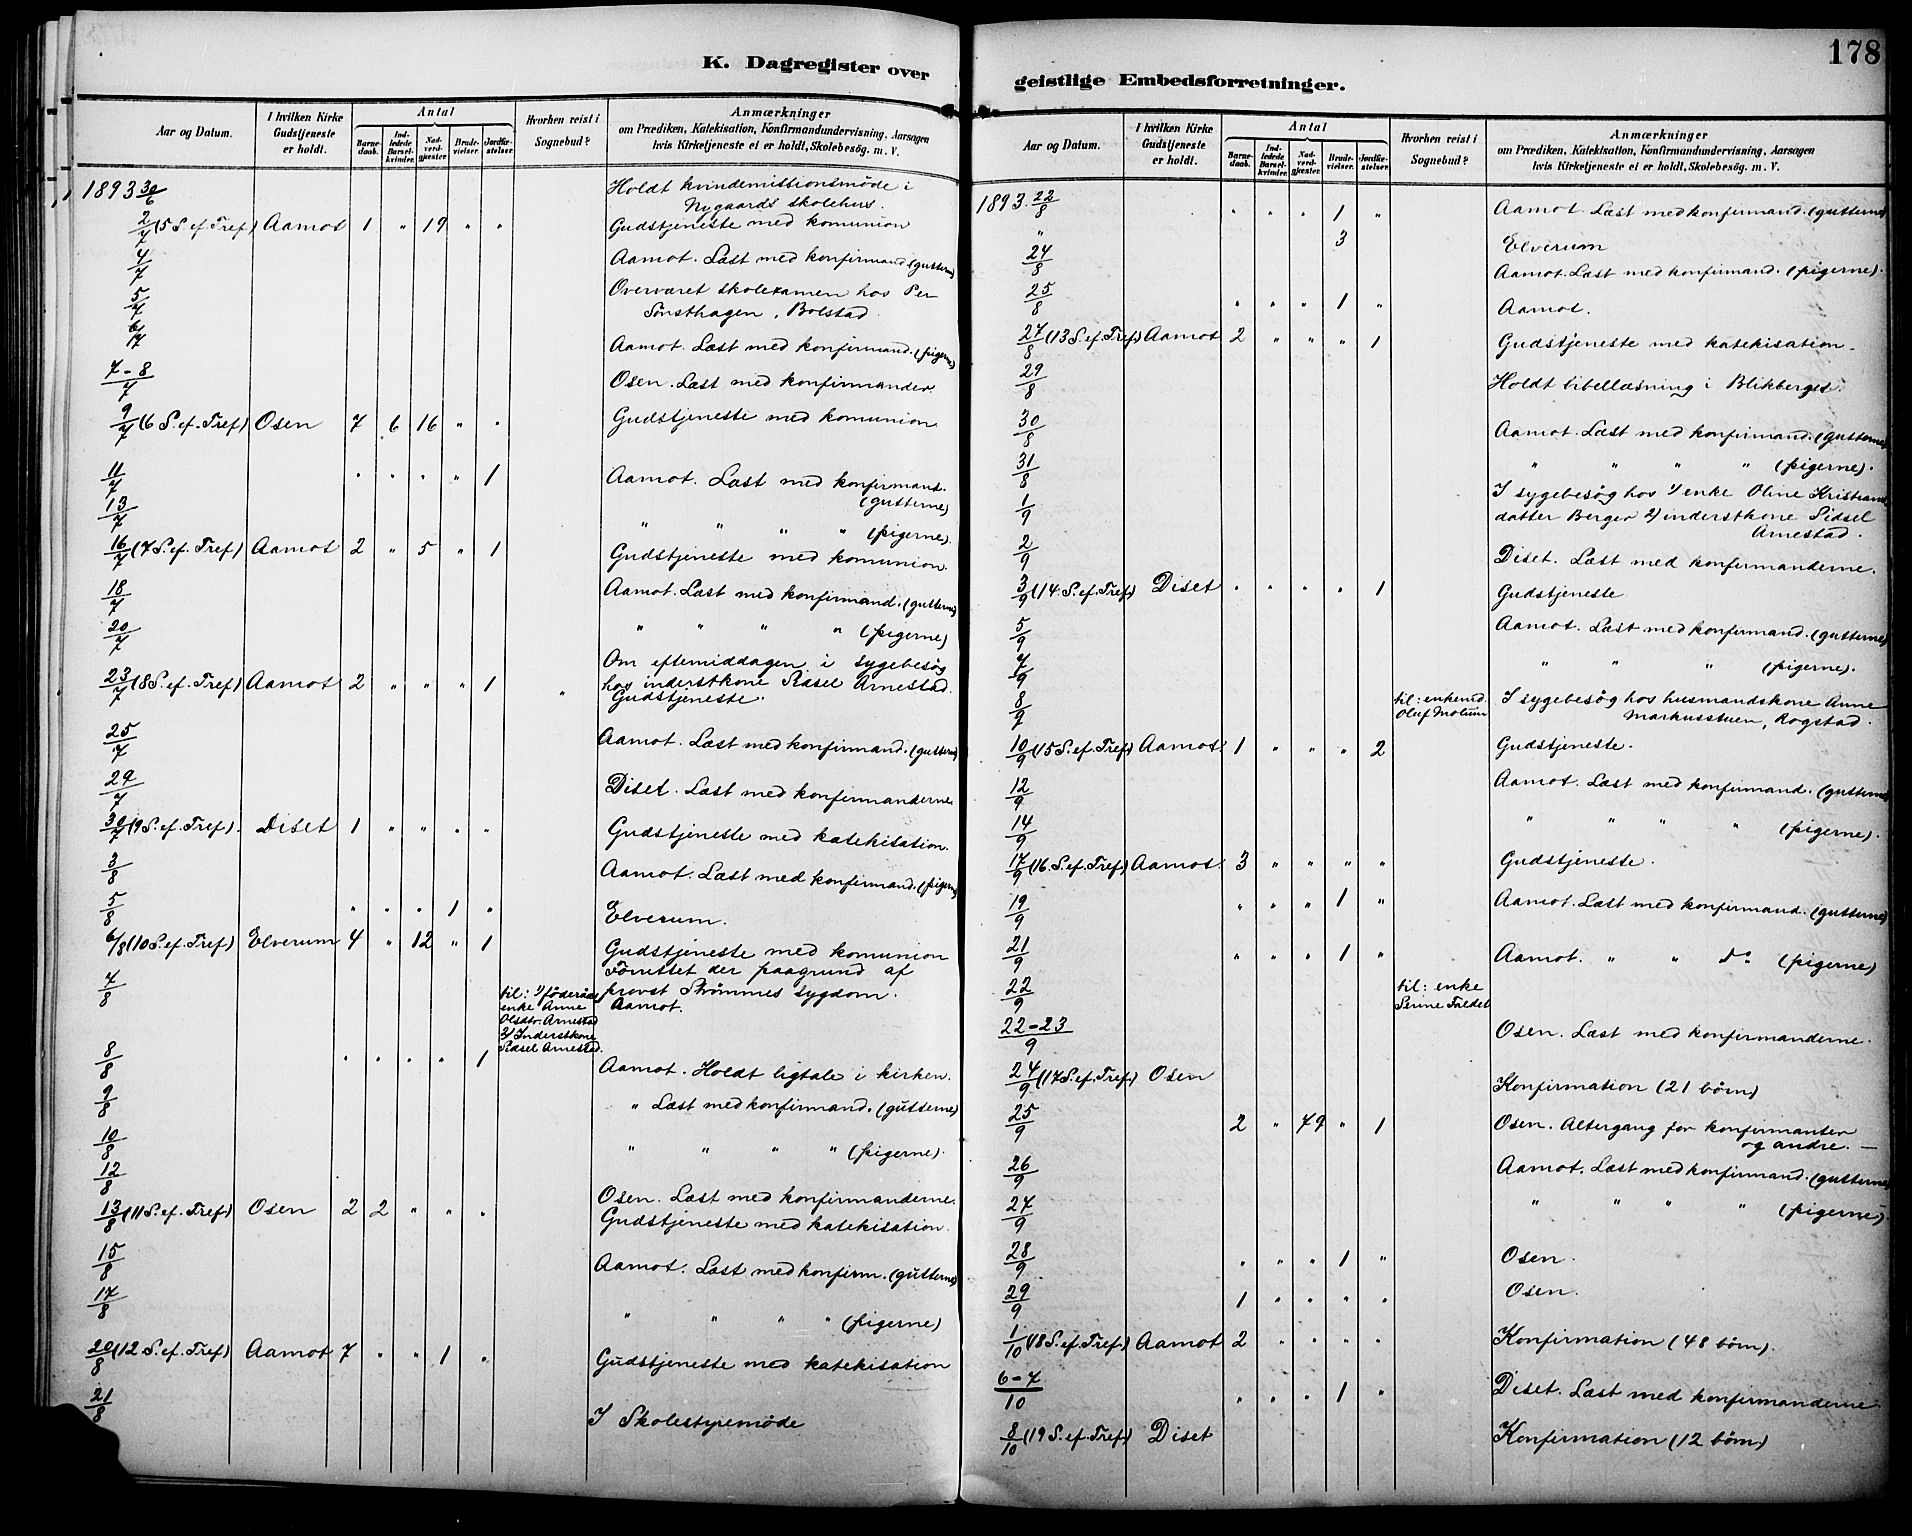 178
K. Dagregister over geistlige Embedsforretninger.
Aar og Datum. I hvilken Kirke Gudstjeneste er holdt. Antal Barnedaab. Indledede Barselkvinder. Nadverdgjester. Brudevielser. Jordfæstelser. Hvorhen reist i Sognebud? Anmærkninger om Prædiken, Katekisation, Konfirmandundervisning, Aarsagen hvis Kirketjeneste ei er holdt, Skolebesög. m. V.
1893 30/6 Holdt kvindemissionsmöde i
Nygaards skolehus.
2/7 (5 S. ef. Tref) Aamot 1 " 19 " " Gudstjeneste med komunion
4/7 Aamot. Læst med konfirmand (gutterne)
5/7 Overværet skolexamen hos Per
Tønsthagen, Bolstad.
6/7 Aamot. Læst med konfirmand. (pigerne)
7-8/7 Osen. Læst med konfirmander.
9/7 (6 S. ef. Tref) Osen 7 6 16 " " Gudstjeneste med komunion
11/7 " " " " 1 Aamot. Læst med konfirmand.
(gutterne)
13/7 " " " " (pigerne)
16/7 (7 S. ef. Tref) Aamot 2 " 5 " 1 Gudstjeneste med komunion.
18/7 Aamot. Læst med konfirmand. (gutterne)
20/7 " " " " (pigerne)
Om eftemiddagen i sygebesög
23/7 (8 S. ef. Tref) Aamot 2 " " " 1 " hos inderstkone Sidsel Arnestad.
Gudstjeneste.
25/7 Aamot. Læst med konfirmand. (gutterne)
29/7 Diset. Læst med konfirmanderne
30/7 (9 S. ef. Tref). Diset 1 " " " " Gudstjeneste med katekisation.
3/8 Aamot. Læst med konfirmand. (pigerne)
5/8 " " " 1 " Elverum.
6/8 (10 S. ef. Tref) Elverum 4 " 12 " 1 Gudstjeneste med komunion
Forrettet der paagrund af
provst Strømmes sygdom.
7/8 til: 1/ föderåds Aamot.
enke Anne
Olsdtr. Arnestad
2/ Inderstkone
Sidsel Arnestad.
8/8 " " " " 1 Aamot. Holdt ligtale i kirken.
9/8 " Læst med konfirmand. (gutterne)
10/8 " " " " (pigerne)
12/8 Osen. Læst med konfirmanderne.
13/8 (11 S. ef. Tref) Osen 2 2 " " " Gudstjeneste med katekisation.
15/8 Aamot. Læst med konfirm. (gutterne)
17/8 " " " " (pigerne)
20/8 (12 S. ef. Tref) Aamot 7 " " 1 " Gudstjeneste med katekisation
21/8 I Skolestyremöde
Aar og Datum. I hvilken Kirke Gudstjeneste er holdt. Antal Barnedaab. Indledede Barselkvinder. Nadverdgjester. Brudevielser. Jordfæstelser. Hvorhen reist i Sognebud? Anmærkninger om Prædiken, Katekisation, Konfirmandundervisning, Aarsagen hvis Kirketjeneste ei er holdt, Skolebesög. m. V.
1893. 22/8 " " " 1 " Aamot. Læst med konfirmand. (gutterne)
" 3 Elverum
24/8 Aamot. Læst med konfirmand. (pigerne).
25/8 " " " 1 " Aamot.
27/8 (13 S. ef. Tref) Aamot 2 " " " 1 Gudstjeneste med katekisation.
29/8 Holdt bibellæsning i Blikberget.
30/8 Aamot. Læst med konfirmand. (gutterne)
31/8 " " " " (pigerne).
1/9 I sygebesög hos 1/ enke Oline Kristians
datter Berger 2/ inderstkone Sidsel
Arnestad.
2/9 Diset. Læst med konfirmanderne.
3/9 (14 S. ef. Tref) Diset " " " " 1 Gudstjeneste
5/9 Aamot. Læst med konfirmand. (gutterne)
7/9 " " " (pigerne).
8/9 til: enkemd. I sygebesög hos husmandskone Anne
Oluf Motum Markusstuen, Rogstad.
10/9 (15 S. ef. Tref) Aamot 1 " " " 2 Gudstjeneste.
12/9 Aamot. Læst med konfirmand. (gutterne)
14/9 " " " " (pigerne).
17/9 (16 S. ef. Tref) Aamot 3 " " " " Gudstjeneste.
19/9 " " " 1 " Aamot. Læst med konfirmand. (gutterne)
21/9 " " " 1 " Aamot. " " do (pigerne)
22/9 til: enke
22-23/9 Osen. Læst med konfirmanderne.
24/9 (17 S. ef. Tref.) Osen Konfirmation (21 børn)
25/9 2 " 79 " 1 Osen. Altergang for konfirmanter
og andre. —
26/9 Aamot. Læst med konfirmand. (gutterne)
27/9 " " " " (pigerne).
28/9 " " " 1 " Osen.
29/9 1 " " " " Osen.
1/10 (18 S. ef. Tref) Aamot 2 " " " " Konfirmation (48 børn).
6-7/10 " " " 1 " Diset. Læst med konfirmanderne.
8/10 (19 S. ef. Tref) Diset Konfirmation (12 børn)